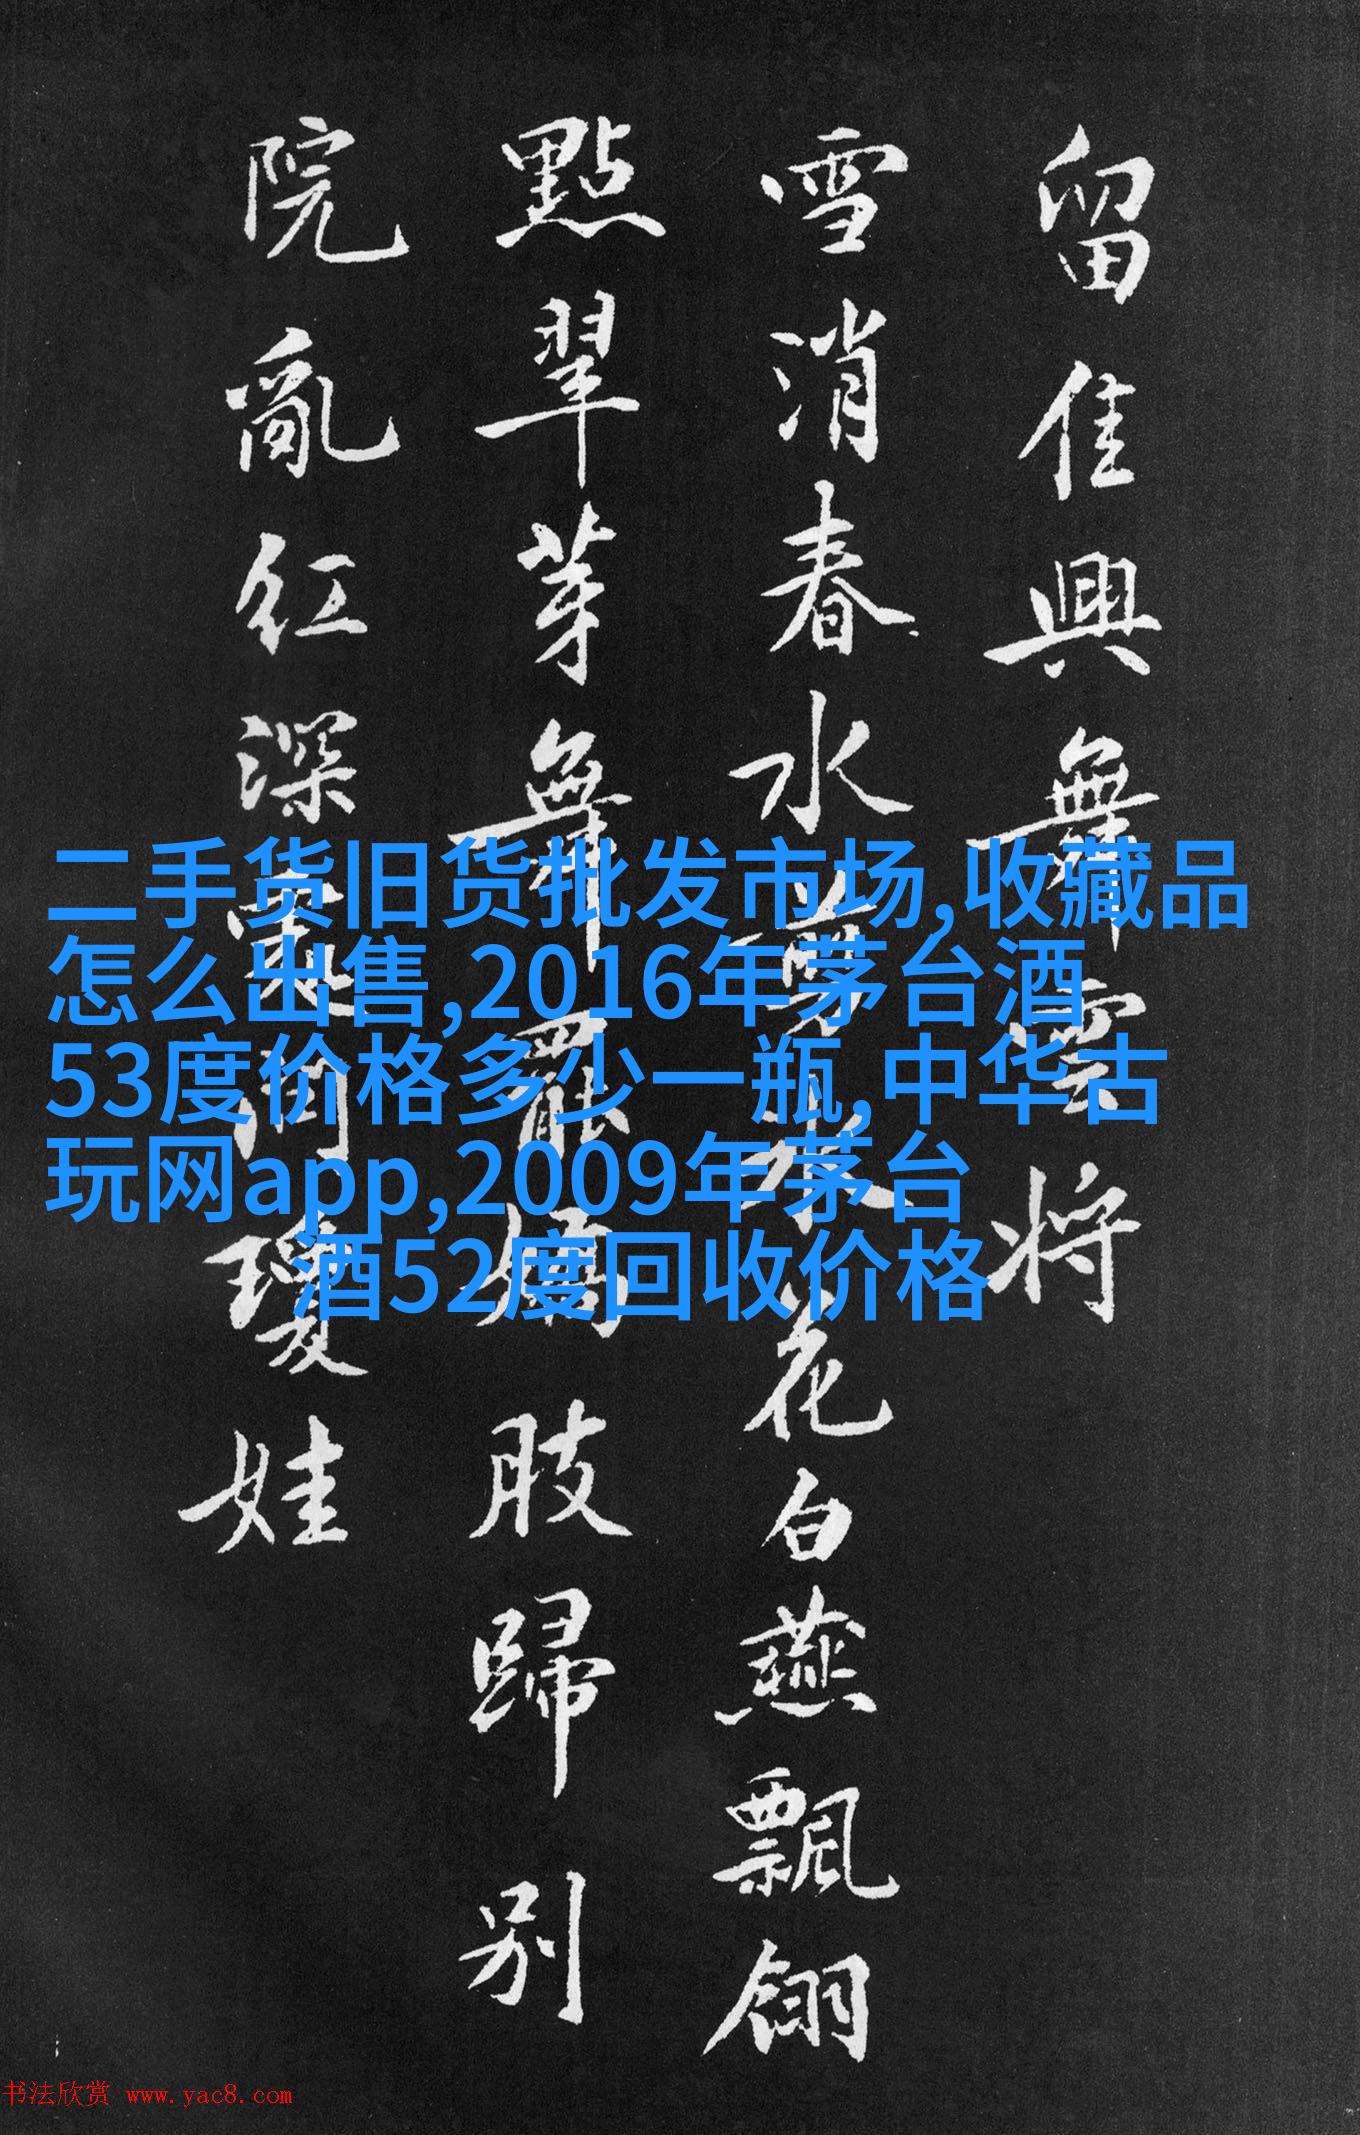 留佳興舞雲将
雪消春水夢水花白燕飄翎
點翠芽舞罷嬌肢歸别
院亂红深處问瓊娃
二手货旧货批发市场,收藏品
怎么出售,2016年茅台酒
53度价格多少一瓶,中华古
玩网app,2009年茅台
酒52度回收价格
书法欣赏 www.yac8.com